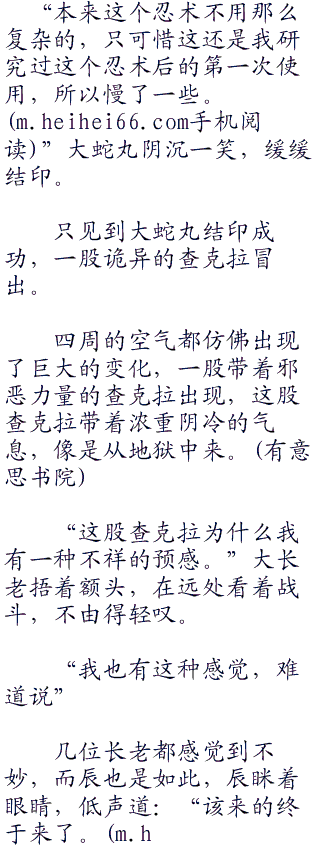 “本来这个忍术不用那么
复杂的，只可惜这还是我研
究过这个忍术后的第一次使
用，所以慢了一些。
(m.heihei66.com手机阅
读)”大蛇丸阴沉一笑，缓缓
结印。
只见到大蛇丸结印成
功，一股诡异的查克拉冒
出。
四周的空气都仿佛出现
了巨大的变化，一股带着邪
恶力量的查克拉出现，这股
查克拉带着浓重阴冷的气
息，像是从地狱中来。(有意
思书院)
“这股查克拉为什么我
有一种不祥的预感。”大长
老捂着额头，在远处看着战
斗，不由得轻叹。
“我也有这种感觉，难
道说”
几位长老都感觉到不
妙，而辰也是如此，辰眯着
眼睛，低声道：“该来的终
于来了。(m.h